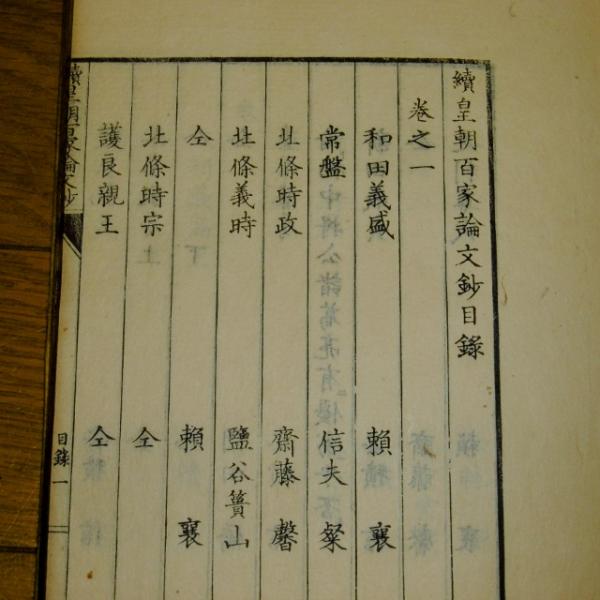 續皇朝百家論文鈔目錄
卷之一
和田義盛 賴襄
常盤 信夫粲
北條時政 齋藤馨
北條義時 鹽谷簣山
仝 賴襄
北條時宗 仝
護良親王 仝
續皇朝百家論文鈔 目錄一